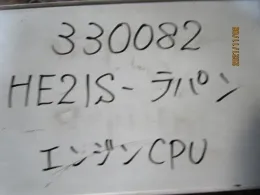 330082
HE21S-ラパン
エンジンCPU